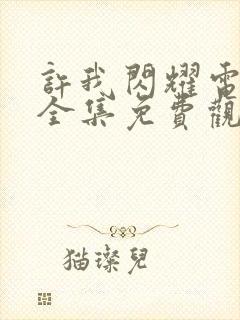 許我閃耀電
全集免費觀
猫璨兒